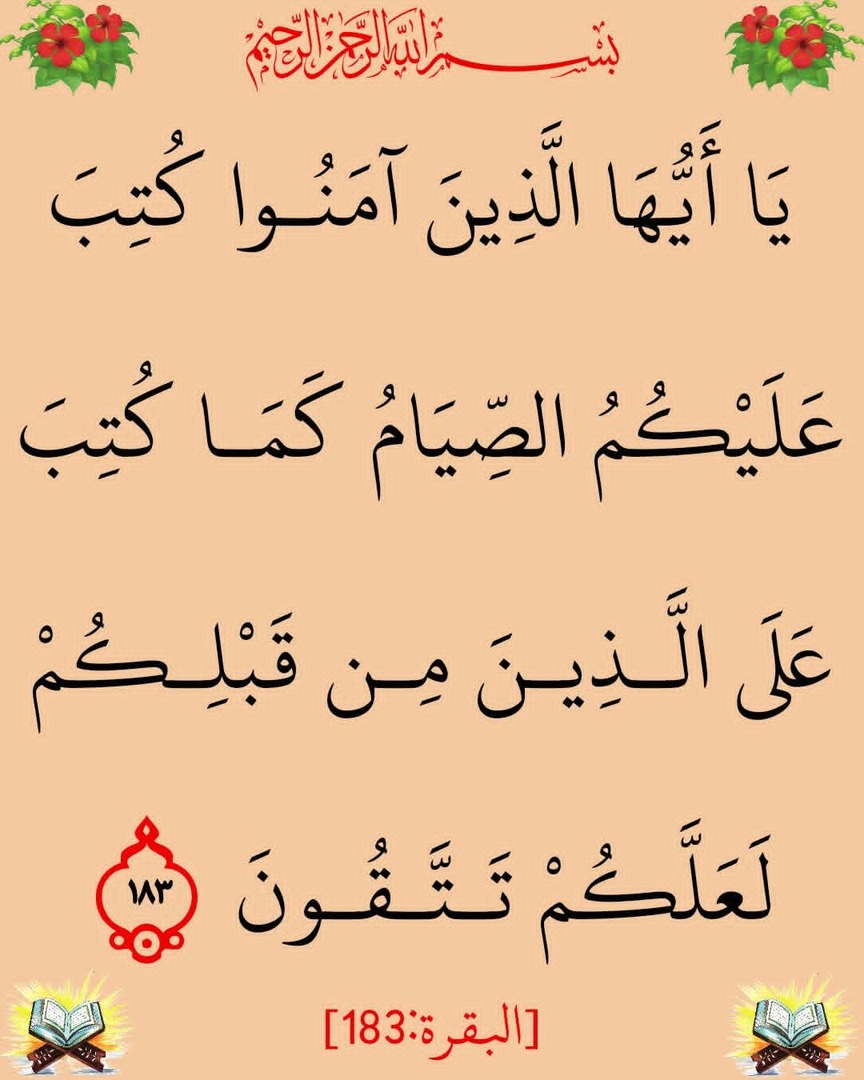 بسم الله الرحمن الرحيم
يَا أَيُّهَا الَّذِينَ آمَنُوا كُتِبَ
عَلَيْكُمُ الصِّيَامُ كَمَا كُتِبَ
عَلَى الَّذِينَ مِن قَبْلِكُمْ
لَعَلَّكُمْ تَتَّقُونَ ١٨٣
[البقرة:183]